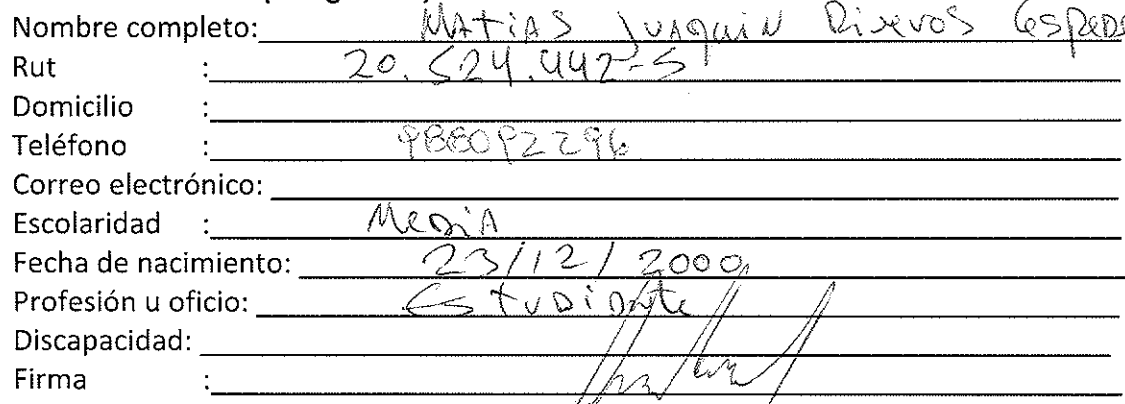 Nombre completo: MAtiAS JUAQuiN Riveros CespeDs
Rut : 20.524.442-5
Domicilio :
Teléfono : 988092296
Correo electrónico:
Escolaridad : MeDiA
Fecha de nacimiento: 23/12/2000
Profesión u oficio: EstuDiante
Discapacidad:
Firma :